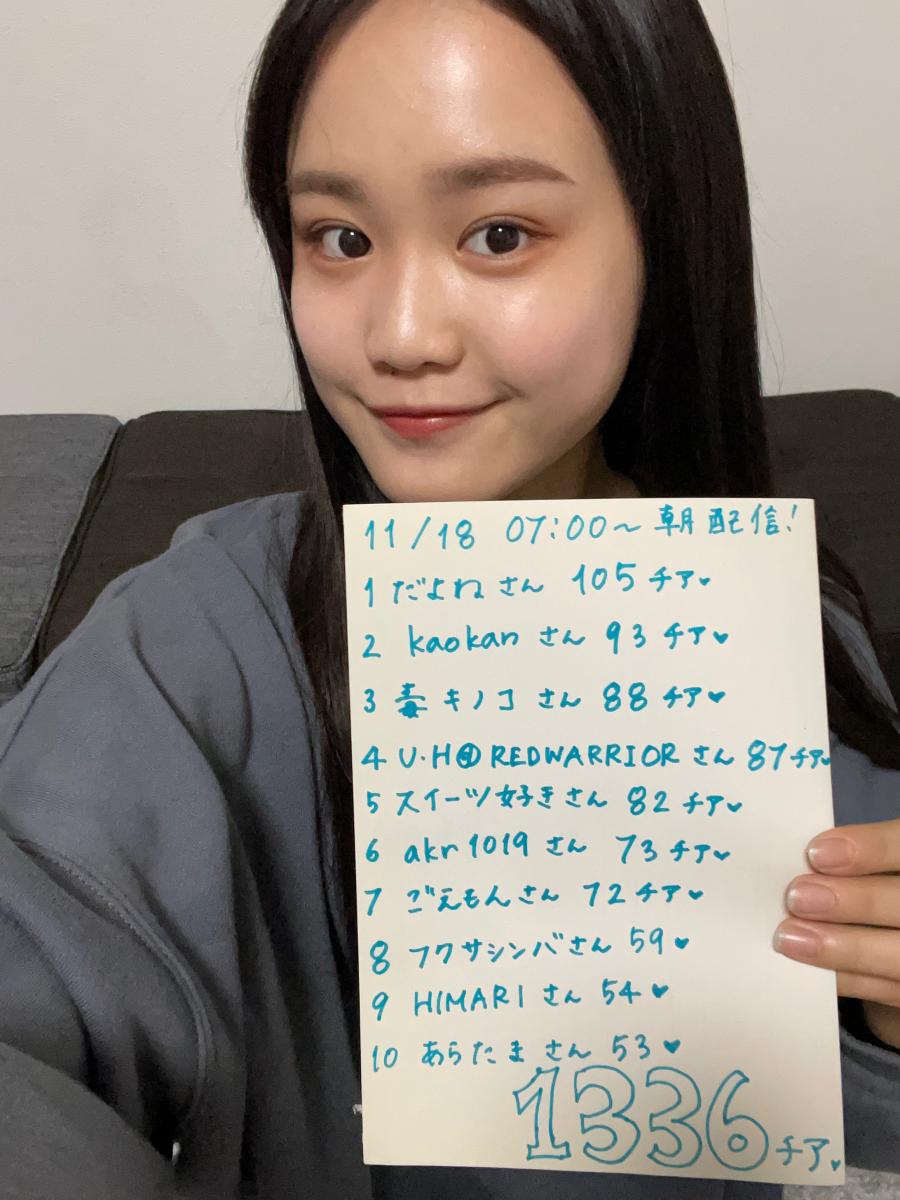 11/18 07:00〜 朝配信!
1 だよねさん 105チア♥
2 kaokanさん 93チア♥
3 毒キノコさん 88チア♥
4 U・H④REDWARRIORさん 87チア♥
5 スイーツ好きさん 82チア♥
6 akr1019さん 73チア♥
7 ごえもんさん 72チア♥
8 フクサシンバさん 59♥
9 HIMARIさん 54♥
10 あらたまさん 53♥
1336チア♥